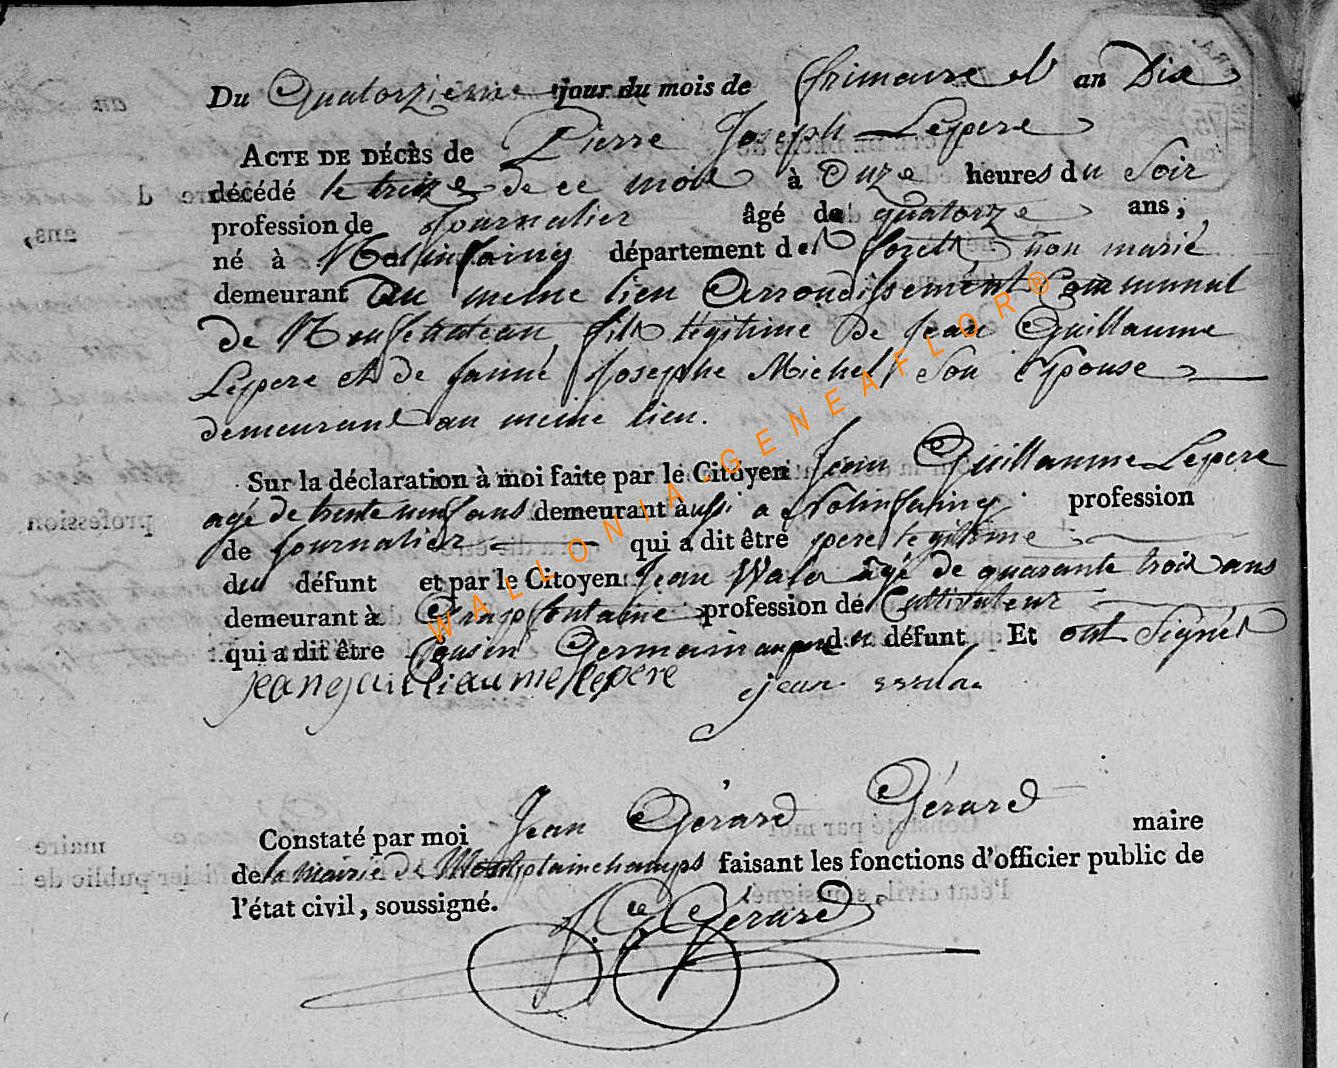 Du Quatorzieme jour du mois de frimaire l' an Dix
ACTE DE DÉCÈS de Pierre Joseph Lepere
décédé le treize de ce mois à Onze heures du Soir
profession de Journalier âgé de quatorze ans,
né à Nolinfaing département des forets, non marié
demeurant Au meme lieu Arrondissement Communal
de Neufchateau, fils légitime de Jean Guillaume
Lepere et de Josephe Michel Son Epouse
demeurant au meme lieu.
Sur la déclaration à moi faite par le Citoyen Jean Guillaume Lepere
agé de trente neuf ans demeurant aussi a Nolinfaing profession
de Journalier qui a dit être pere legitime
du défunt et par le Citoyen Jean âgé de quarante trois ans
demeurant à Grapfontaine profession de Cultivateur
qui a dit être Cousin Germain du défunt Et ont Signés
jean guilliaume lepere jean
Constaté par moi Jean Gérard Gérard maire
de la Mairie de faisant les fonctions d'officier public de
l'état civil, soussigné. Gérard
WALLONIA-GENEAFLOR®